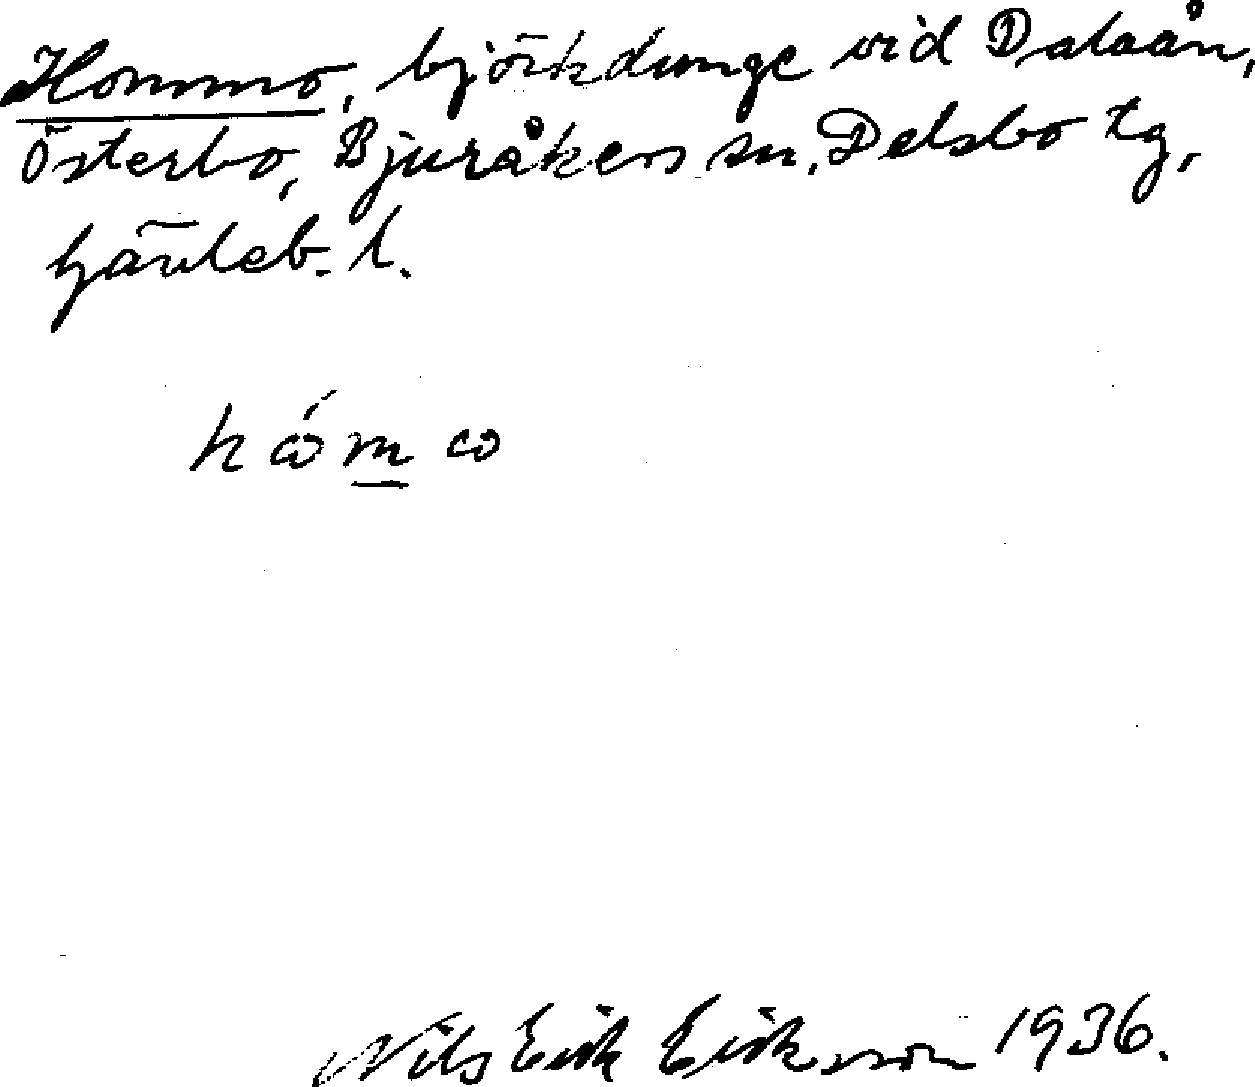 Hommo, björkdunge vid Dalaån,
Österbo, Bjuråkers sn, Delsbo tg,
Gävleb. l.
hώm̲ω
Nils Erik Eriksson 1936.